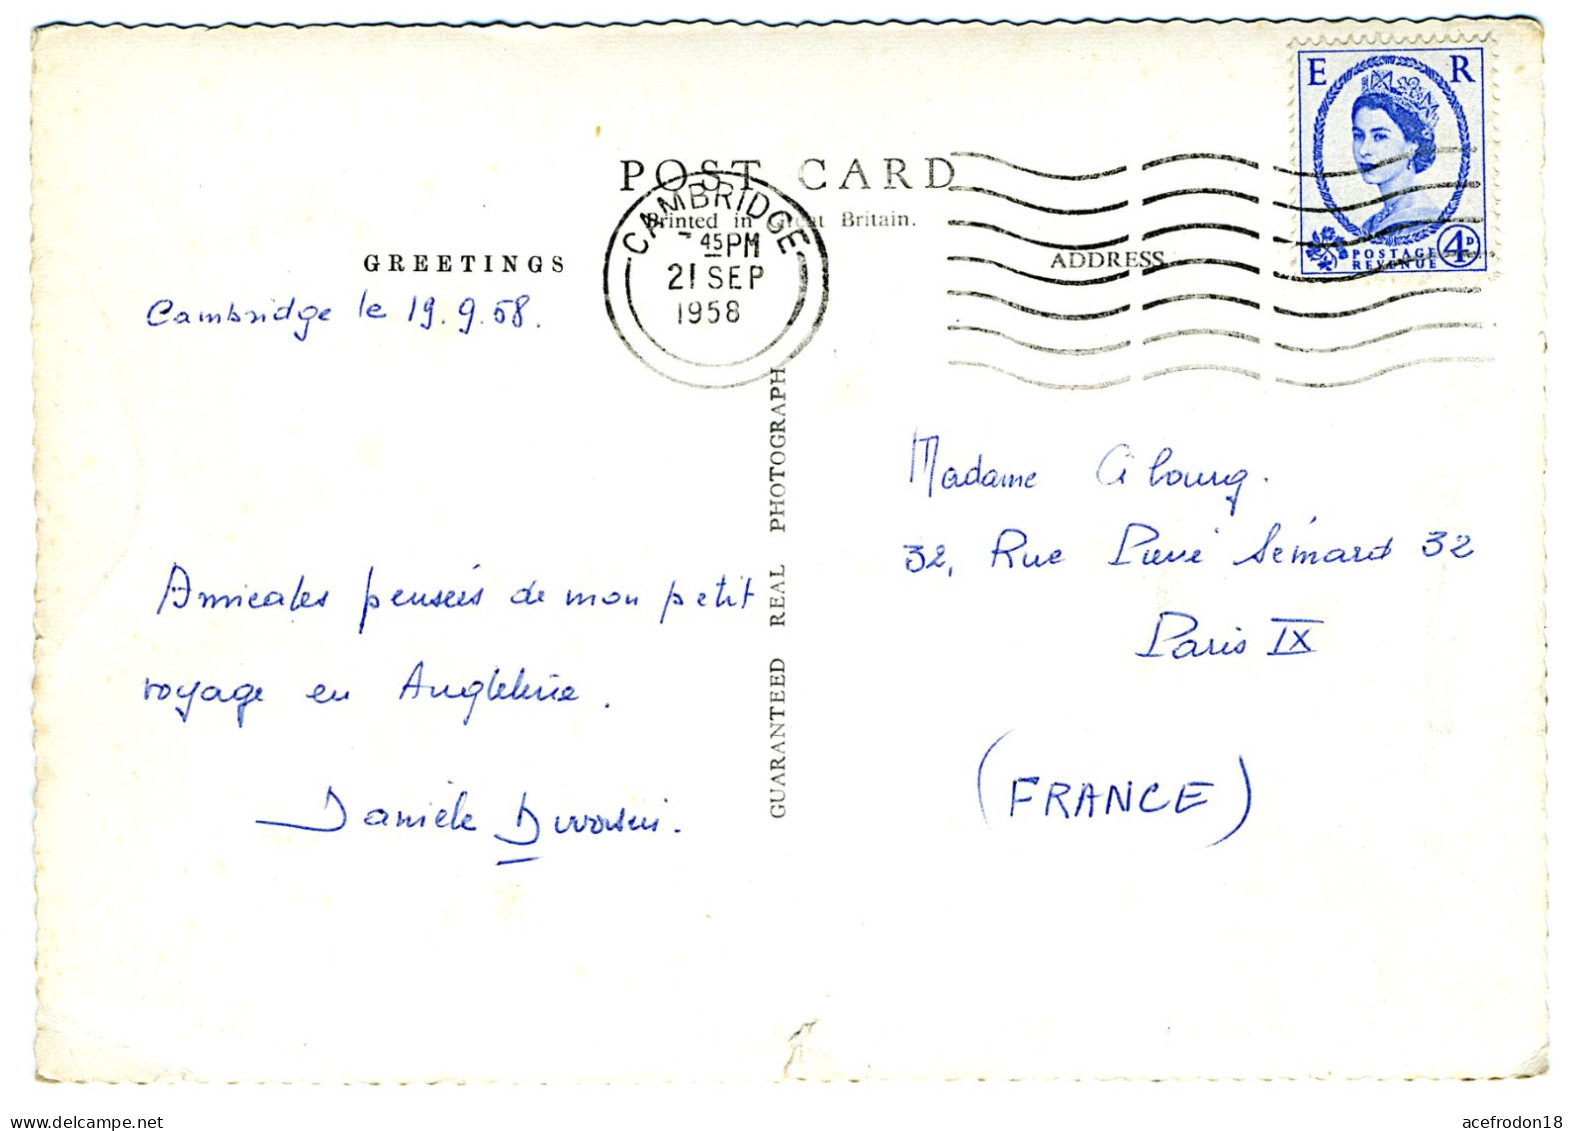 POST CARD
Printed in Great Britain.
GREETINGS
ADDRESS
CAMBRIDGE
45 PM
21 SEP
1958
E R
POSTAGE
REVENUE
4D
Cambridge le 19.9.58.
Amicales pensées de mon petit
voyage en Angleterre.
Danièle
GUARANTEED REAL PHOTOGRAPH
Madame
32, Rue Pierre Sémard 32
Paris IX
(FRANCE)
delcampe.net
acefrodon18